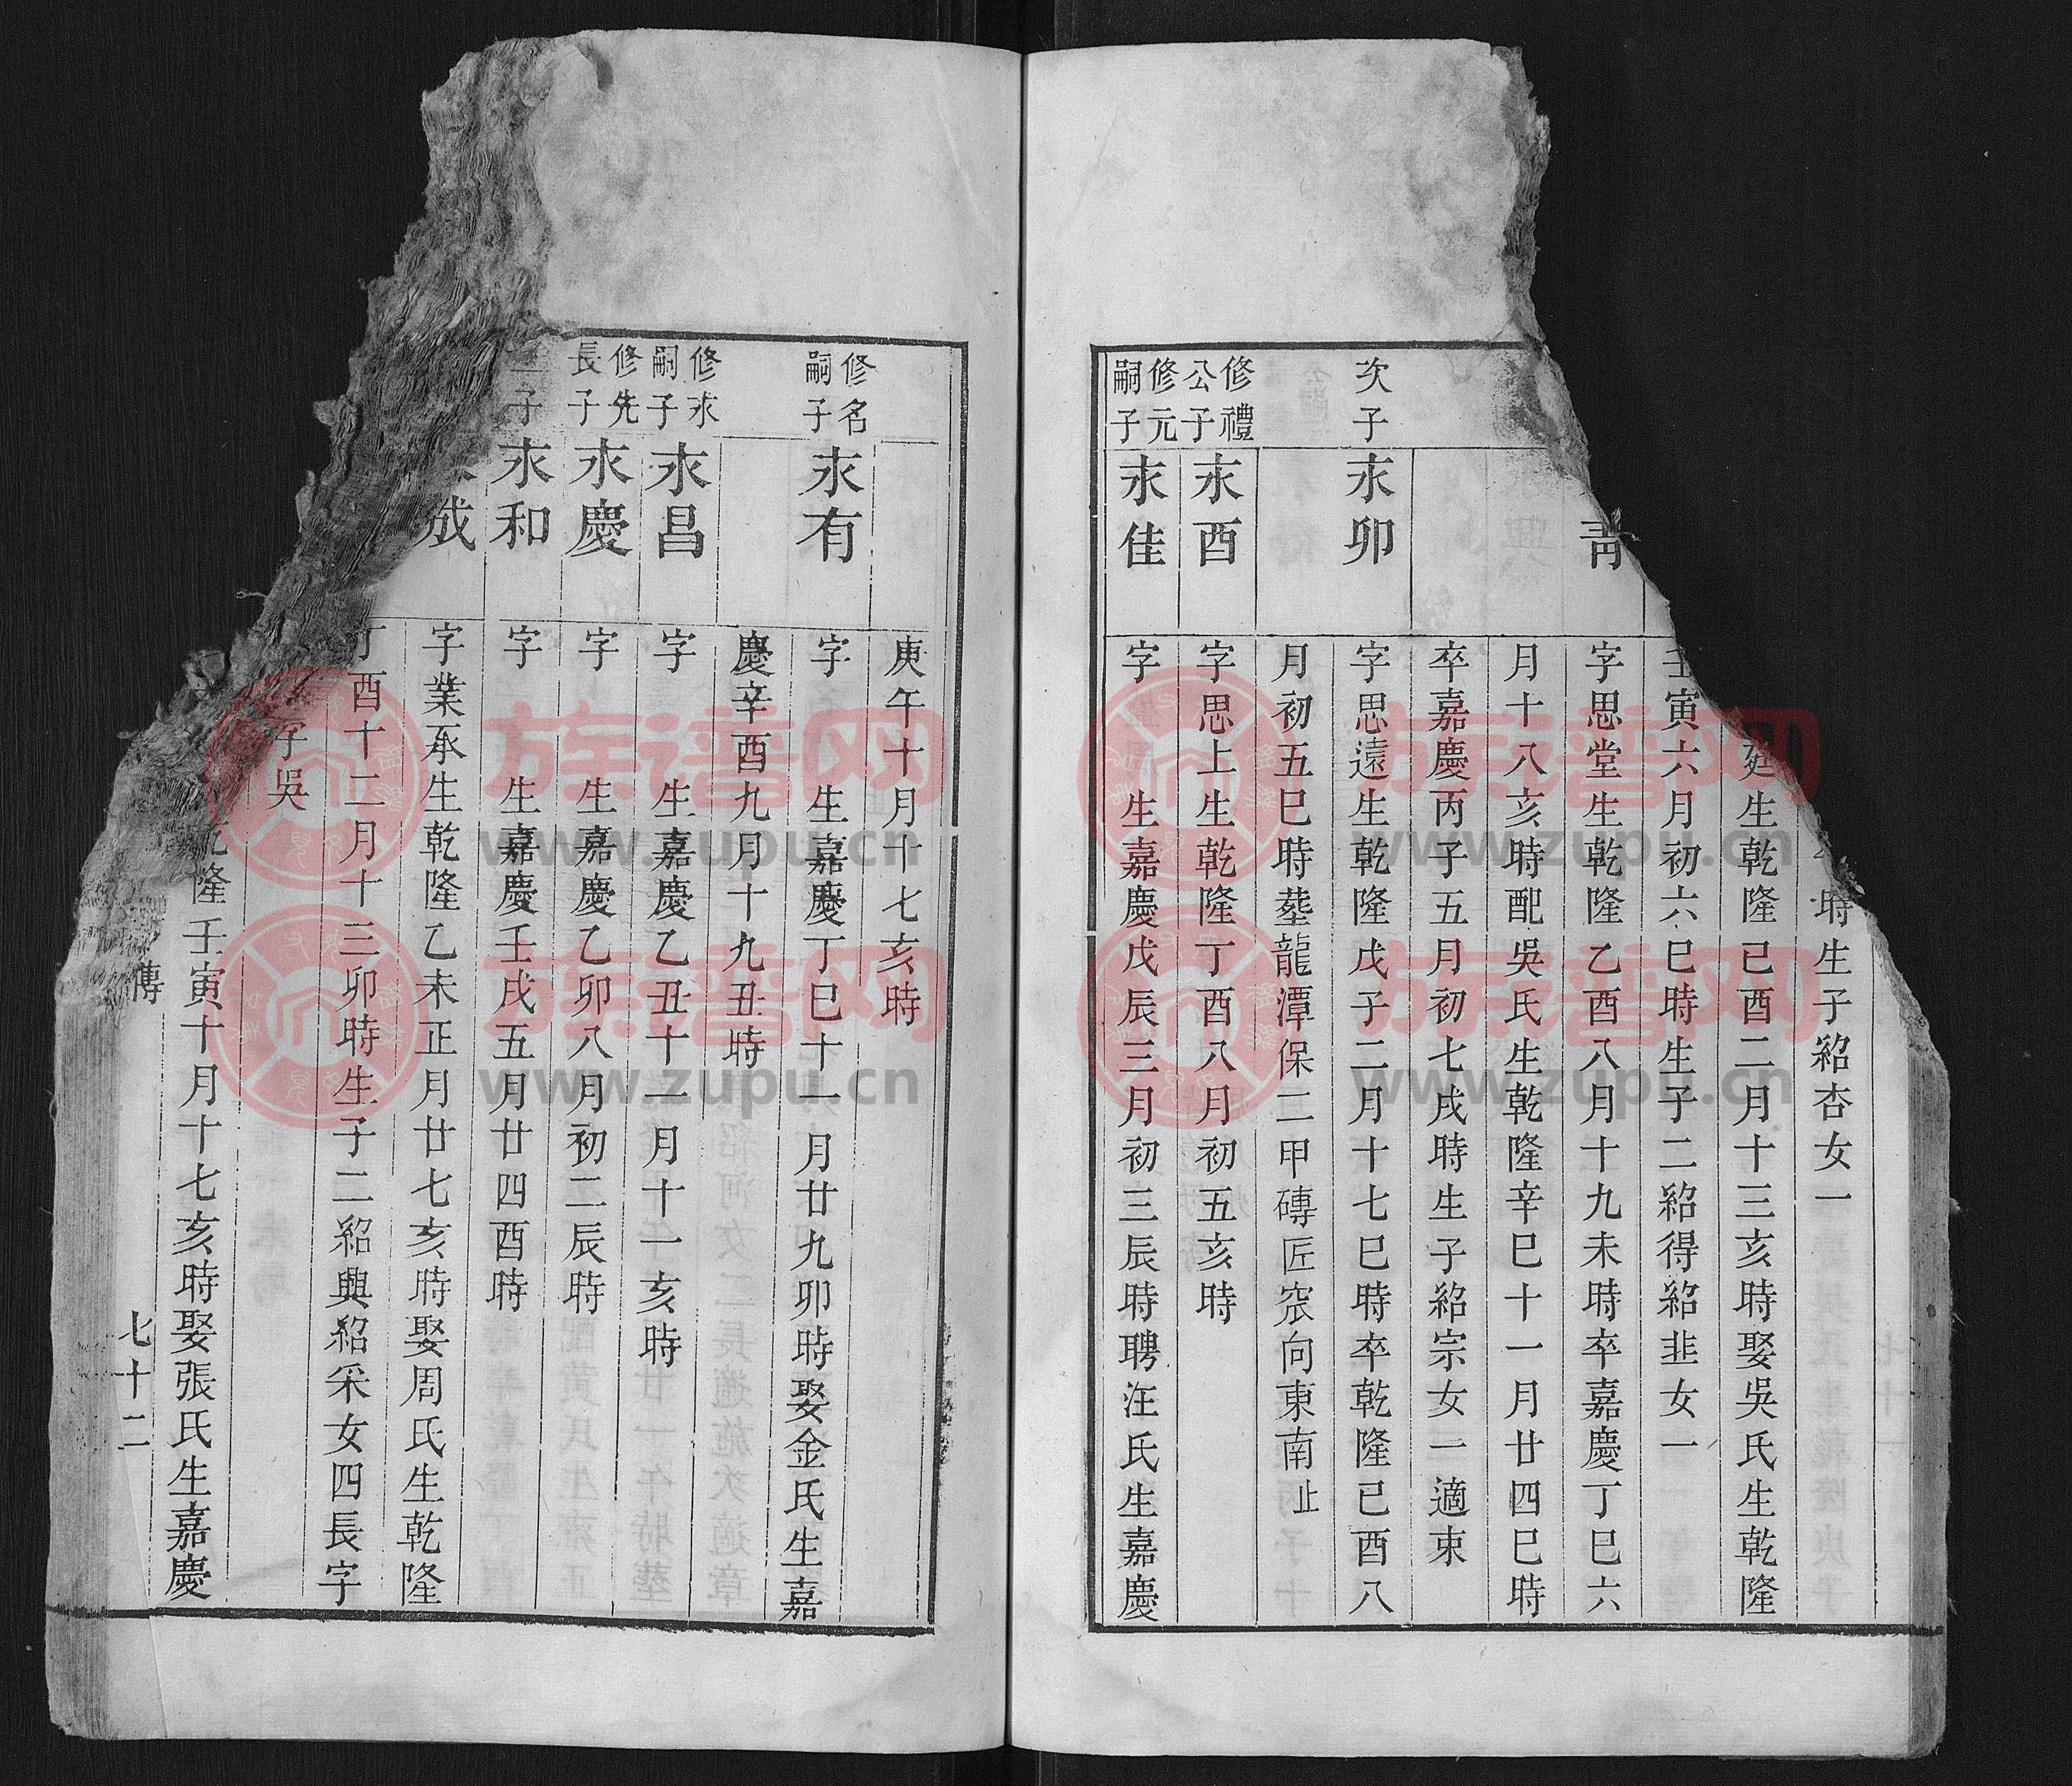 時生子紹杏女一
生乾隆己酉二月十三亥時娶吳氏生乾隆
寅六月初六巳時生子二紹得紹韭女一
字思堂生乾隆乙酉八月十九未時卒嘉慶丁巳六
月十八亥時配吳氏生乾隆辛巳十一月廿四巳時
卒嘉慶丙子五月初七戌時生子紹宗女一適束
次子
永卯
字思遠生乾隆戊子二月十七巳時卒乾隆己酉八
月初五巳時塟龍潭保二甲磚匠窊向東南止
修禮
公子
永酉
字思上生乾隆丁酉八月初五亥時
修元
嗣子
永佳
字 生嘉慶戊辰三月初三辰時聘汪氏生嘉慶
庚午十月十七亥時
修名
嗣子
永有
字 生嘉慶丁巳十一月廿九卯時娶金氏生嘉
慶辛酉九月十九丑時
修永
嗣子
永昌
字 生嘉慶乙丑十一月十一亥時
修先
長子
永慶
字 生嘉慶乙卯八月初二辰時
子
永和
字 生嘉慶壬戌五月廿四酉時
成
字業承生乾隆乙未正月廿七亥時娶周氏生乾隆
丁酉十二月十三卯時生子二紹興紹采女四長字
字吳
隆壬寅十月十七亥時娶張氏生嘉慶
傳
七十二
族谱网
www.zupu.cn
族谱网
www.zupu.cn
族谱网
www.zupu.cn
族谱网
www.zupu.cn